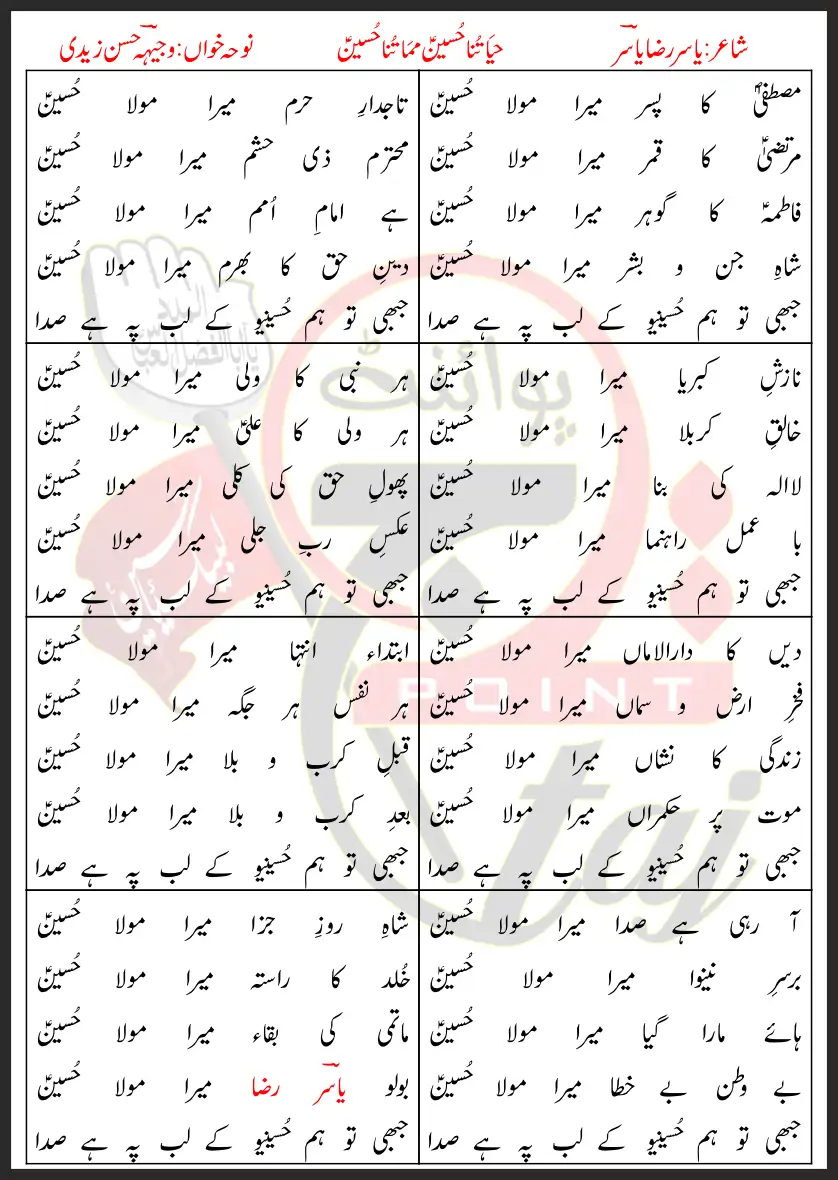 شاعر: یاسر رضا یاسرؔ حیاتُنا حُسینؑ مماتُنا حُسینؑ نوحہ خواں: وجیہہ حسن زیدی
مصطفیٰؐ کا پسر میرا مولا حُسینؑ
مرتضیٰؑ کا قمر میرا مولا حُسینؑ
فاطمہؑ کا گوہر میرا مولا حُسینؑ
شاہِ جن و بشر میرا مولا حُسینؑ
جبھی تو ہم حُسینیو کے لب پہ ہے صدا
تاجدارِ حرم میرا مولا حُسینؑ
محترم ذی حشم میرا مولا حُسینؑ
ہے امامِ اُمم میرا مولا حُسینؑ
دینِ حق کا بھرم میرا مولا حُسینؑ
جبھی تو ہم حُسینیو کے لب پہ ہے صدا
نازشِ کبریا میرا مولا حُسینؑ
خالقِ کربلا میرا مولا حُسینؑ
لا الہ کی بنا میرا مولا حُسینؑ
با عمل راہنما میرا مولا حُسینؑ
جبھی تو ہم حُسینیو کے لب پہ ہے صدا
ہر نبی کا ولی میرا مولا حُسینؑ
ہر ولی کا علیؑ میرا مولا حُسینؑ
پھولِ حق کی کلی میرا مولا حُسینؑ
عکسِ ربِ جلی میرا مولا حُسینؑ
جبھی تو ہم حُسینیو کے لب پہ ہے صدا
دیں کا دارالاماں میرا مولا حُسینؑ
فخرِ ارض و سماں میرا مولا حُسینؑ
زندگی کا نشاں میرا مولا حُسینؑ
موت پر حکمراں میرا مولا حُسینؑ
جبھی تو ہم حُسینیو کے لب پہ ہے صدا
ابتداء انتہا میرا مولا حُسینؑ
ہر نفس ہر جگہ میرا مولا حُسینؑ
قبلِ کرب و بلا میرا مولا حُسینؑ
بعدِ کرب و بلا میرا مولا حُسینؑ
جبھی تو ہم حُسینیو کے لب پہ ہے صدا
آ رہی ہے صدا میرا مولا حُسینؑ
برسرِ نینوا میرا مولا حُسینؑ
ہائے مارا گیا میرا مولا حُسینؑ
بے وطن بے خطا میرا مولا حُسینؑ
جبھی تو ہم حُسینیو کے لب پہ ہے صدا
شاہِ روزِ جزا میرا مولا حُسینؑ
خُلد کا راستہ میرا مولا حُسینؑ
ماتمی کی بقاء میرا مولا حُسینؑ
بولو یاسرؔ رضا میرا مولا حُسینؑ
جبھی تو ہم حُسینیو کے لب پہ ہے صدا
پوائنٹ
POINT
taj